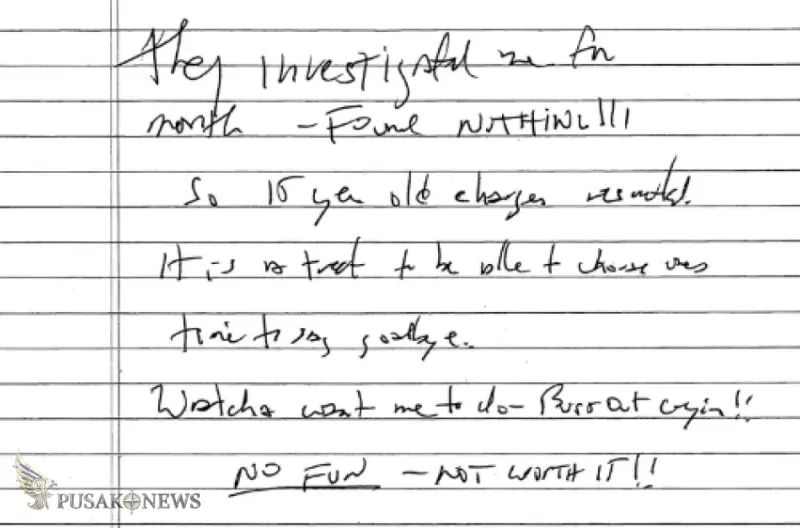 They investigated me for
month – Found NOTHING!!!
So 15 year old charges resulted.
It is a treat to be able to choose ones
time to say goodbye.
Watcha want me to do – Burst out cryin!!
NO FUN – NOT WORTH IT!!
PUSAKONEWS